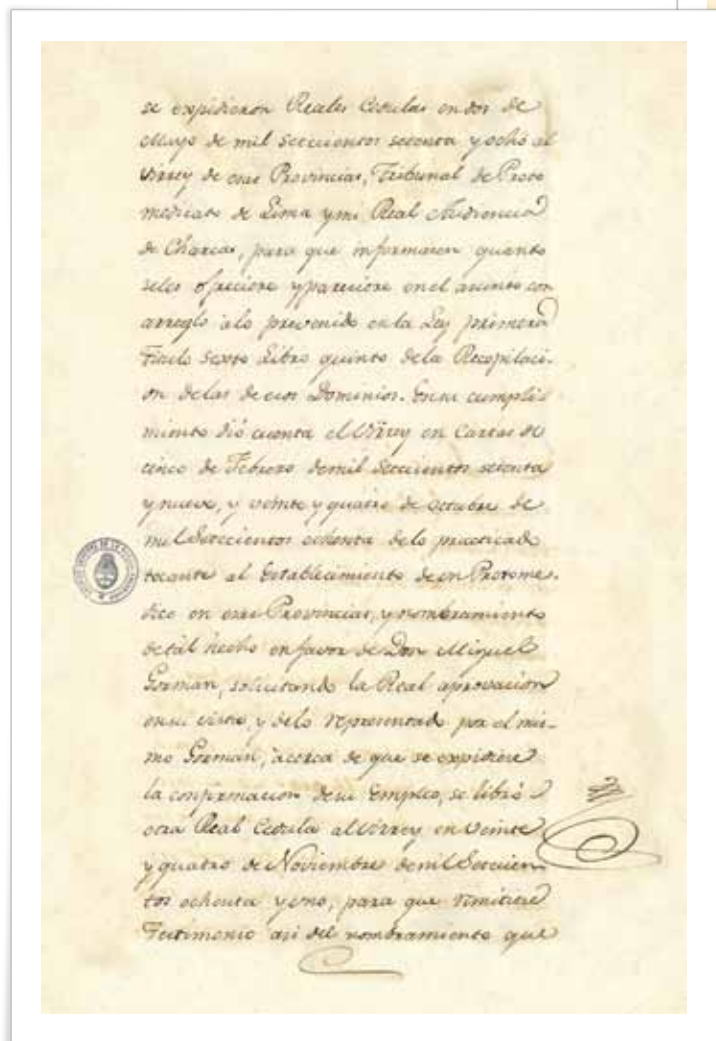 se expidieron Reales Cedulas en dos de
Mayo de mil Setecientos setenta y ochó al
Virrey de esas Provincias, Tribunal de Proto
medicato de Lima y mi Real Audiencia
de Charcas, para que informasen quanto
seles ofreciere y pareciere en el asunto con
arreglo álo prevenido en la Ley primera
Titulo Sexto Libro quinto dela Recopilaci-
on delas de esos Dominios. En su cumpli-
miento dió cuenta el Virrey en Cartas de
cinco de Febrero demil Setecientos setenta
y nueve, y veinte y quatro de Octubre de
mil Setecientos ochenta delo practicado
tocante al Establecimiento de un Protome-
dico en esas Provincias, y nombramiento
detál hecho en favor de Don Miguel
Gorman, solicitando la Real aprovacion
en su vista, y delo representado por el mis-
mo Gorman, ácerca de que se expidiese
la confirmacion desu Empleo, se libró
otra Real Cedula al Virrey en Veinte
y quatro de Noviembre demil Setecien
tos ochenta y uno, para que remitiese
Testimonio asi del nombramiento que